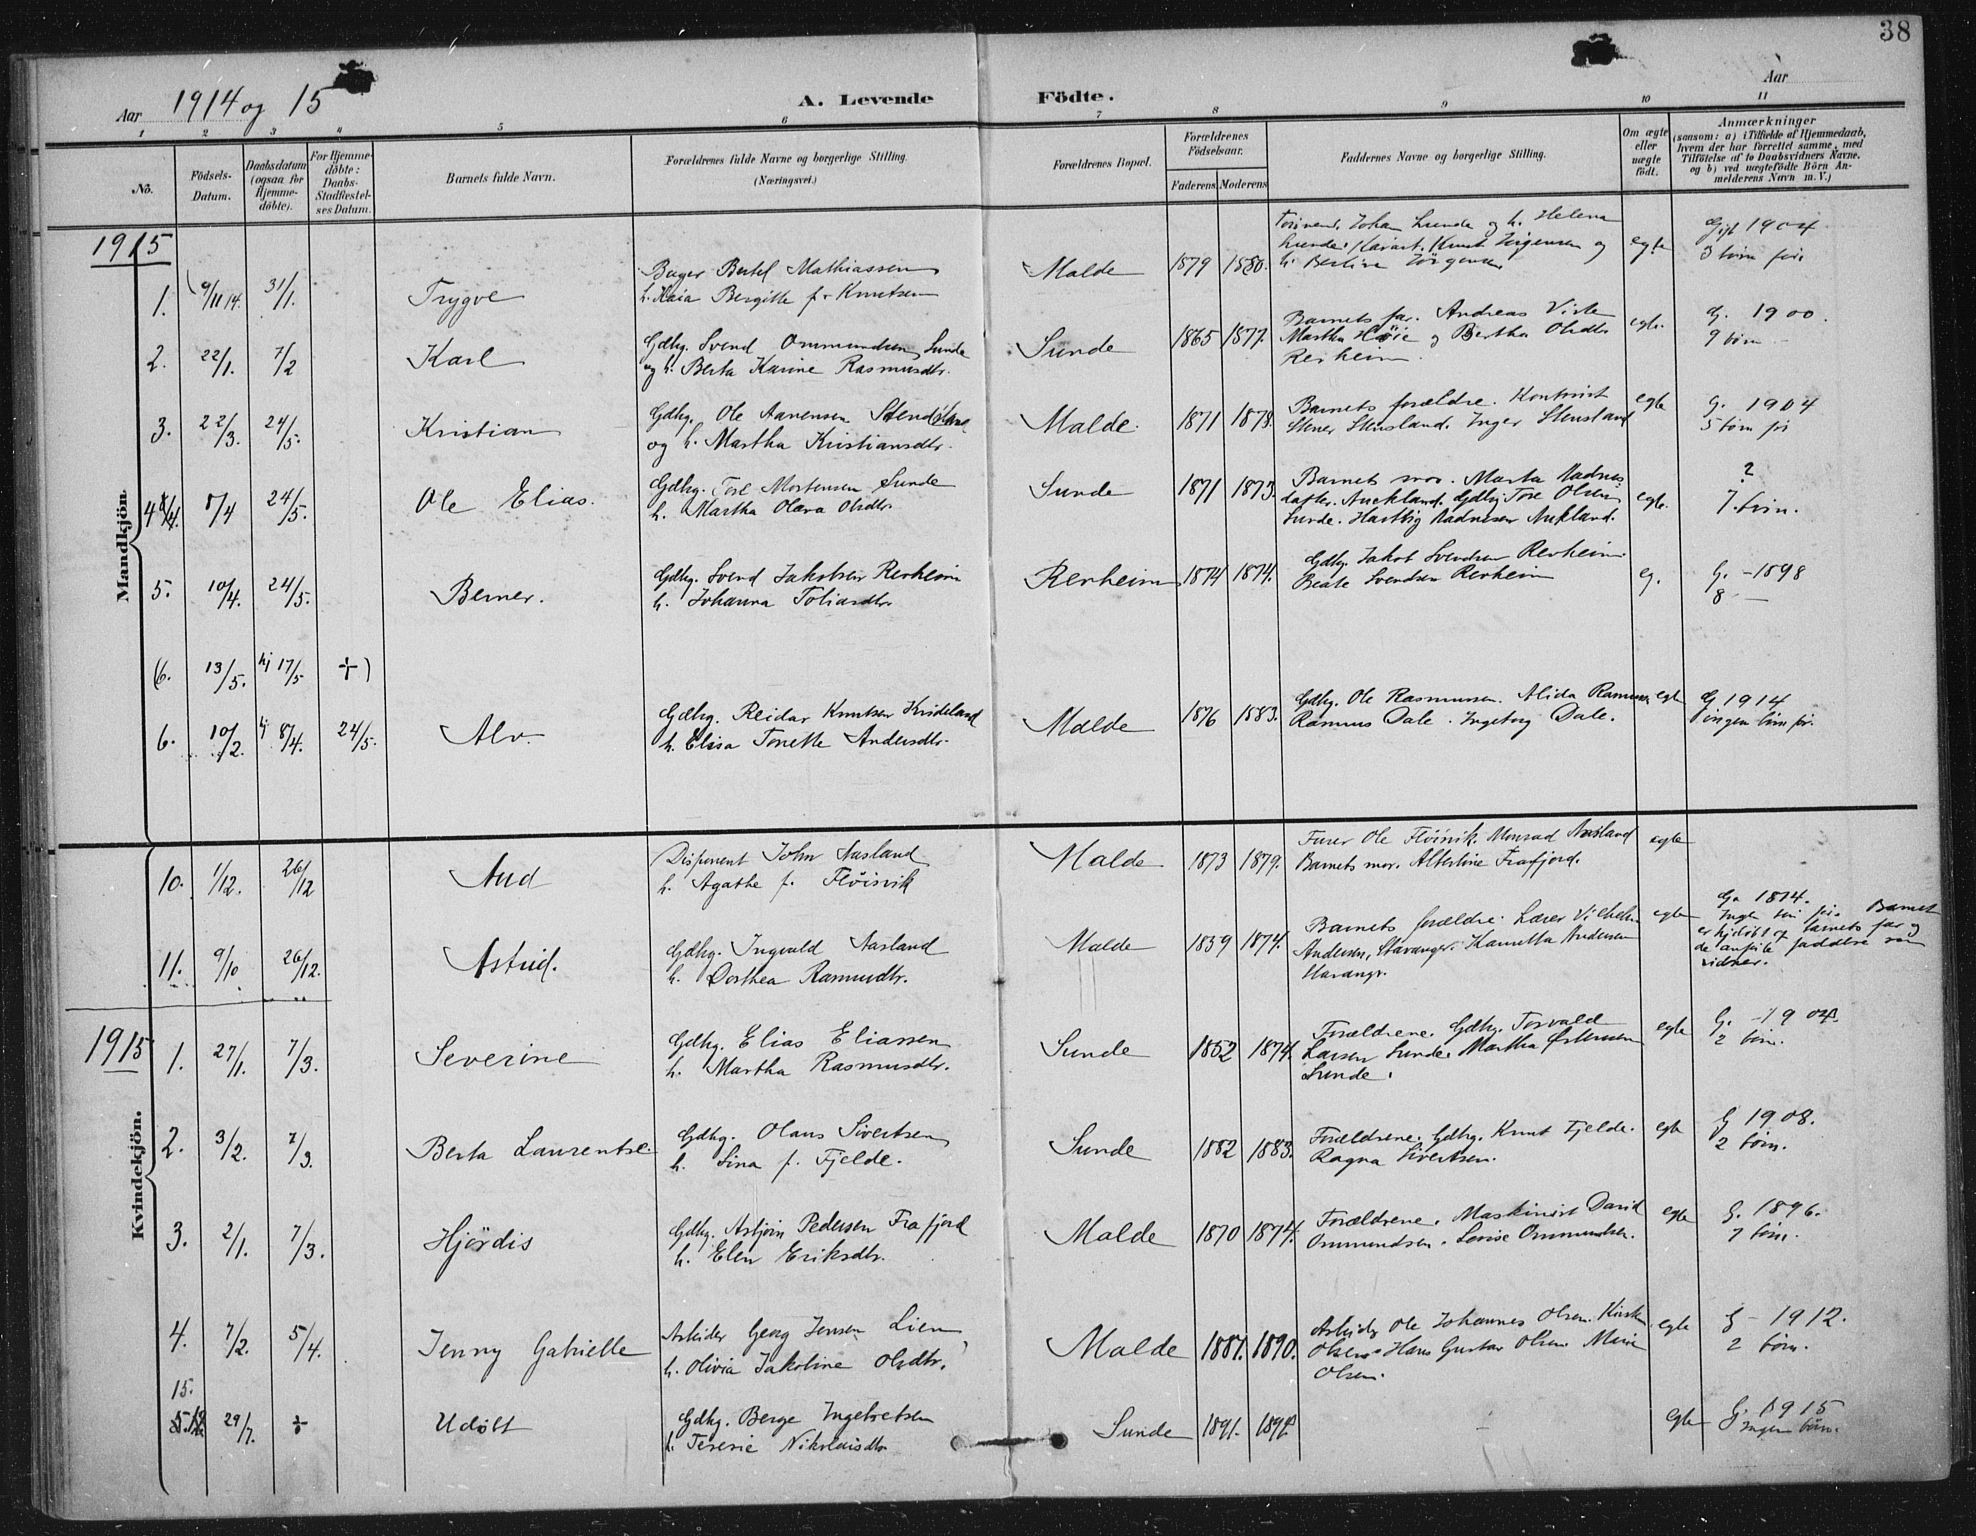 38
Aar 1914 og 15
A. Levende Födte.
Aar
1 2 3 4 5 6 7 8 9 10 11
No.
Födsels-Datum.
Daabsdatum (ogsaa for Hjemme-döbte).
For Hjemme-döbte: Daabs-Stadfæstel-ses Datum.
Barnets fulde Navn.
Forældrenes fulde Navne og borgerlige Stilling. (Næringsvei.)
Forældrenes Bopæl.
Forældrenes Födselsaar.
Faderens Moderens
Faddernes Navne og borgerlige Stilling.
Om ægte eller uægte födt.
Anmærkninger
(saasom: a) i Tilfælde af Hjemmedaab,
hvem der har forrettet samme, med
Tilföielse af to Daabsvidners Navne,
og b) ved uægtefödte Börn An-
melderens Navn m. V.)
Mandkjön.
1915
1. 9/11 14. 31/1. Trygve
Bager Bertel Mathiassen
h. Kaia Bergitte f. Knutsen
Malde 1879 1880.
Johan Lunde og h. Helena
Lunde. Knut Jörgensen og
h. Berline Jörgensen
egte
Gift 1904
3 börn för
2. 22/1. 7/2 Karl
Gdbg. Svend Ommundsen Sunde
og h. Berta Karine Rasmusdtr.
Sunde 1865 1877.
Barnets far. Andreas Viste
Martha Høie og Bertha Olsdtr
Revheim.
egte.
G. 1900.
9 börn
3. 22/3. 24/5. Kristian
Gdbg. Ole Aanensen
og h. Martha Kristiansdtr.
Malde. 1871 1878.
Barnets forældre. Kontorist
Stener Stensland. Inger Stensland
egte
G. 1904
5 börn för
4 8/4. 8/4 24/5. Ole Elias.
Gdbg. Tore Mortensen Sunde
h. Martha Olava Olsdtr.
Sunde 1871 1873.
Barnets mor. Marta Aadnes
datter. Auckland. Gdbg. Tore Olsen
Sunde. Hartvig Aadnesen Aukland.
egte.
?
7. börn.
5. 10/4. 24/5. Berner.
Gdbg. Svend Jakobsen Revheim
h. Johanna Tobiasdtr.
Revheim 1874 1874.
Gdbg. Jakob Svendsen Revheim.
Beate Svendsen Revheim
eg.
G. - 1898
8 -
(6. 13/5. hj 17/5 ÷)
6. 10/2. hj 8/4. 24/5. Alv.
Gdbg. Reidar Knutsen
h. Elisa Tonette Andersdtr.
Malde 1876 1883.
Gdbg. Ole Rasmussen. Alida Rasmussen
Rasmus Dale. Ingeborg Dale.
egte
G 1914
ingen börn för.
Kvindekjön.
10. 1/12. 26/12 Aud
Disponent John Aasland
h. Agathe f. Flöisvik
Malde 1873 1879.
Ole Flöisvik. Monrad Aasland
Barnets mor. Albertine Frafjord.
egte
11. 9/10 26/12. Astrid.
Gdbg. Ingvald Aasland
h. Dorthea Rasmusdtr.
Malde 1839 1874.
Barnets forældre. Lærer Vilhelm
Andersen, Stavanger. Andersen
Stavanger.
egte
G. 1874.
Barnet
er hjdöbt af barnets far og
de anförte faddere som
vidner.
1915
1. 27/1. 7/3. Severine
Gdbg. Elias Eliassen
h. Martha Rasmusdtr.
Sunde 1852 1874.
Forældrene. Gdbg. Torvald
Larsen Sunde. Martha
Sunde.
egte
G. - 1904.
2 börn.
2. 3/2. 7/3. Berta Laurentse.
Gdbg. Olaus Sivertsen
h. Sina f. Fjelde.
Sunde 1882 1883.
Forældrene. Gdbg. Knut Fjelde.
Ragna Sivertsen.
egte
G 1908.
2 börn.
3. 2/1. 7/3. Hjördis
Gdbg. Asbjörn Pedersen Frafjord
h. Elen Eriksdtr.
Malde 1870 1874.
Forældrene. Maskinist David
Ommundsen. Lovise Ommundsen.
egte
G. 1896.
7 börn.
4. 7/2. 5/4. Jenny Gabrielle
Arbeider Georg Jensen Lien
h. Olivia Jakobine Olsdtr.
Malde 1887. 1890.
Arbeider Ole Johannes Olsen.
Olsen. Hans Gustav Olsen. Marie
Olsen.
egte
G - 1912.
2 börn.
15.
29/7. ÷ Udöbt
Gdbg. Berge Ingebretsen
h. Nikolaisdtr.
Sunde 1891.
egte
G. 1915
Ingen börn.